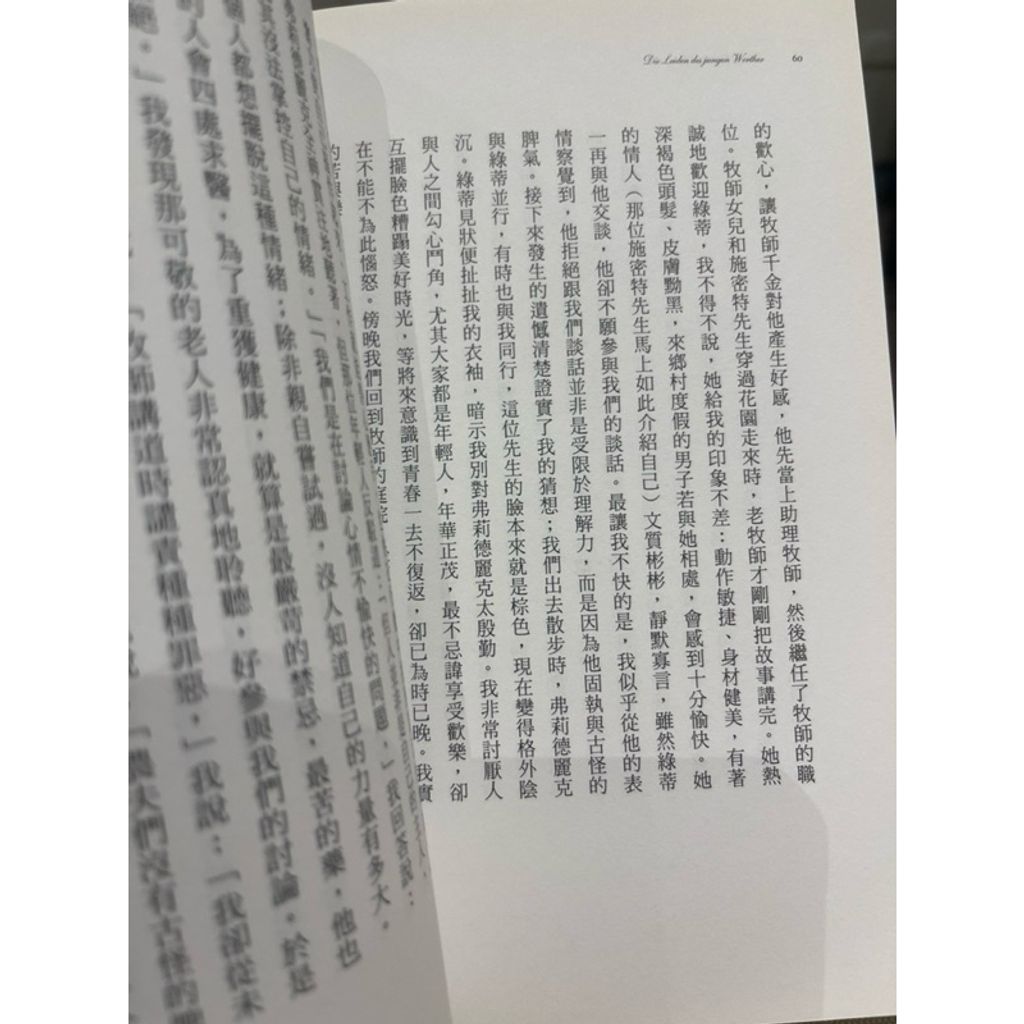 Die Leiden des jungen Werther
60
的歡心，讓牧師千金對他產生好感，他先當上助理牧師，然後繼任了牧師的職
位。牧師女兒和施密特先生穿過花園走來時，老牧師才剛剛把故事講完。她熱
誠地歡迎綠蒂，我不得不說，她給我的印象不差：動作敏捷、身材健美，有著
深褐色頭髮、皮膚黝黑，來鄉村度假的男子若與她相處，會感到十分愉快。她
的情人（那位施密特先生馬上如此介紹自己）文質彬彬，靜默寡言，雖然綠蒂
一再與他交談，他卻不願參與我們的談話。最讓我不快的是，我似乎從他的表
情察覺到，他拒絕跟我們談話並非是受限於理解力，而是因為他固執與古怪的
脾氣。接下來發生的遺憾清楚證實了我的猜想；我們出去散步時，弗莉德麗克
與綠蒂並行，有時也與我同行，這位先生的臉本來就是棕色，現在變得格外陰
沉。綠蒂見狀便扯扯我的衣袖，暗示我別對弗莉德麗克太殷勤。我非常討厭人
與人之間勾心鬥角，尤其大家都是年輕人，年華正茂，最不忌諱享受歡樂，卻
互擺臉色糟蹋美好時光，等將來意識到青春一去不復返，卻已為時已晚。我實
在不能不為此惱怒。傍晚我們回到牧師的庭院
自己的情緒。」「我們是在討論心情不愉快的問題，」我回答說：
個人都想擺脫這種情緒；除非親自嘗試過，沒人知道自己的力量有多大。
的人會四處求醫，為了重獲健康，就算是最嚴苛的禁忌、最苦的藥，他也
。」我發現那可敬的老人非常認真地聆聽，好參與我們的討論。於是
牧師講道時譴責種種罪惡，」我說：「我卻從未